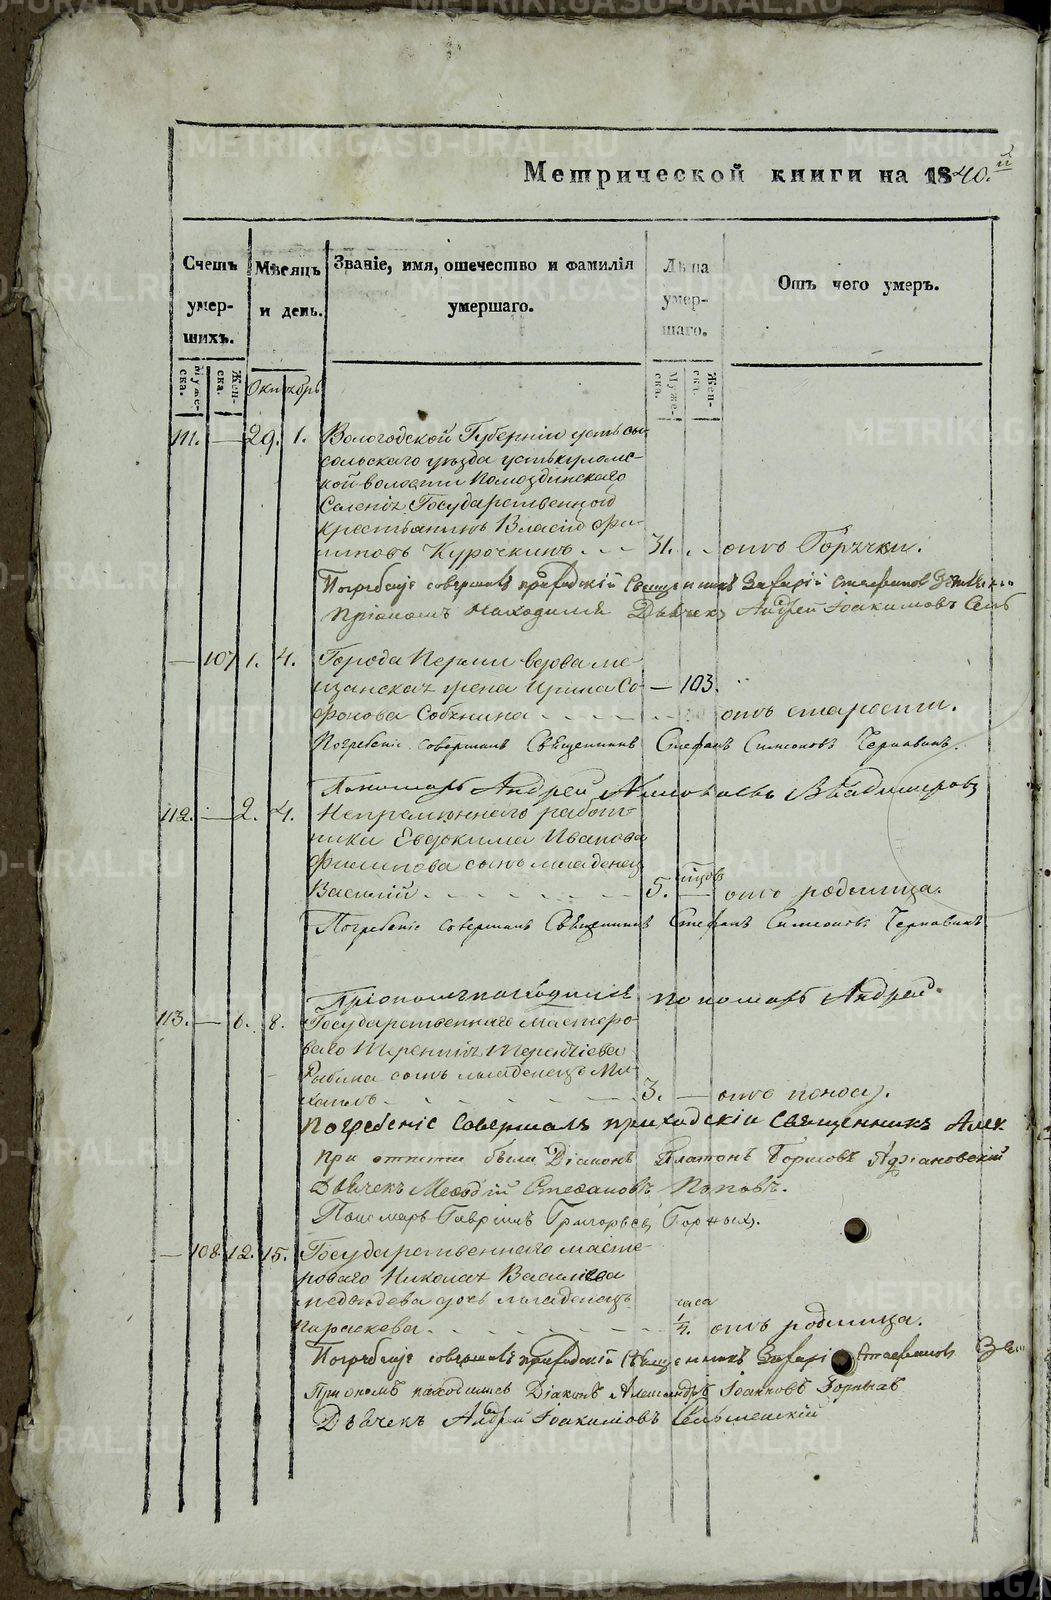 Метрической книги на 1840.й
Счетъ умер- шихъ.
Мѣсяцъ и день.
Званіе, имя, отечество и фамилія умершаго.
Лѣта умер- шаго.
Отъ чего умеръ.
Муже- ска.
Жен- ска.
Октябрь
Муже- ска.
Жен- ска.
111. — 29. 1. Вологодской Губерніи усть сы-
сольскаго уѣзда устькуломс-
кой волости Помоздинскаго
Селенія Государственной
крестьянинъ Власій Фи-
липовъ Курочкинъ. . . — 31. . . отъ Горячки.
Погребеніе совершалъ приходскій Священникъ Захарій Стефановъ
При ономъ находился Дьячекъ Андрей Іоакимовъ
— 107 1. 4. Города Перми вдова ме-
щанская жена Ирина Со-
— 103.
фонова Собянина - - - - отъ старости.
Погребеніе совершалъ Священникъ Стефанъ Симеоновъ Чернавинъ.
Пономарь Андрей Владимировъ
112. — 2. 4. Непремѣннаго работ-
ника Евдокима Иванова
Филипова сынъ младенец
Василій . . . . . . . 5. — отъ родимца.
Погребеніе совершалъ Священникъ Стефанъ Симеоновъ Чернавинъ.
При ономъ находился пономарь Андрей
113. — 6. 8. Государственнаго мастеро-
ваго Терентія Терентіева
Рыбина сынъ младенецъ Ми-
хаилъ - - - - - - 3. — отъ поноса.
Погребеніе совершалъ приходскій Священникъ Алек
При отпетіи были Діаконъ Платонъ Борисовъ Адріановскій
Дьячекъ Меѳодій Стефановъ Поповъ.
Пономарь Гавріилъ Григорьевъ Горныхъ.
— 108. 12. 15. Государственнаго масте-
роваго Николая Василіева
медведева дочь младенецъ
часа
Параскева. - - - - - 1/4. отъ родимца.
Погребеніе совершалъ приходскій Священникъ Захарій Стефановъ
При ономъ находились Діаконъ Александръ Іоанновъ Горныхъ
Дьячекъ Андрей Іоакимовъ Сельменскій